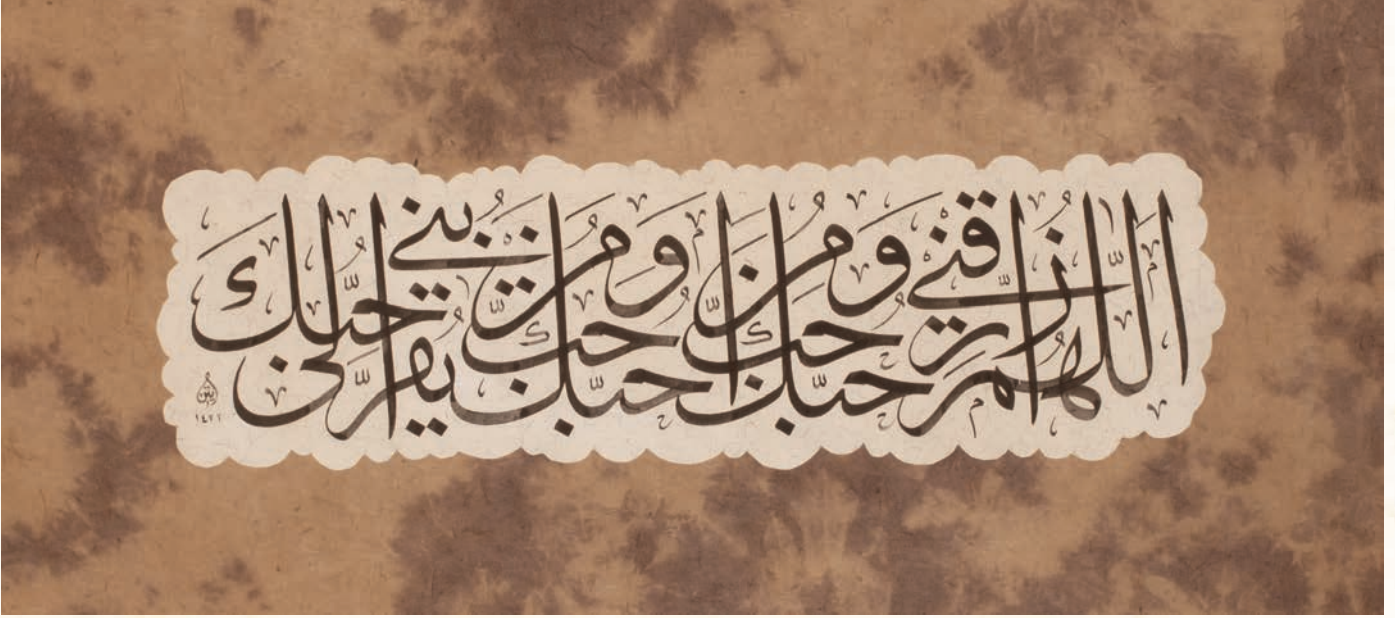 اللهم ارزقني حبك وحب من أحبك وحب من يقربني إلى حبك
١٤٢٢